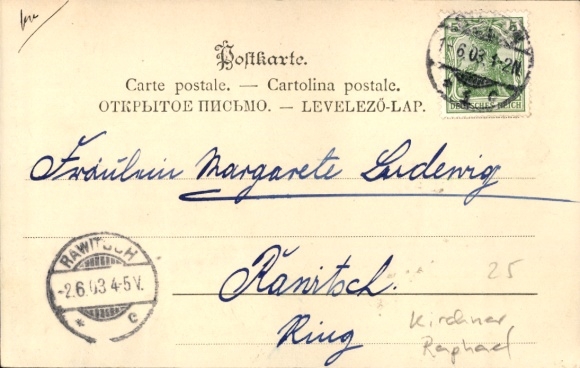 Postkarte.
Carte postale. — Cartolina postale.
ОТКРЫТОЕ ПИСЬМО. — LEVELEZŐ-LAP.
5
6.03 1-2N.
DEUTSCHES REICH
Fräulein Margarete Ludewig
RAWITSCH
-2.6.03 4-5V.
* c
Rawitsch.
Ring
25
Kirchner
Raphael